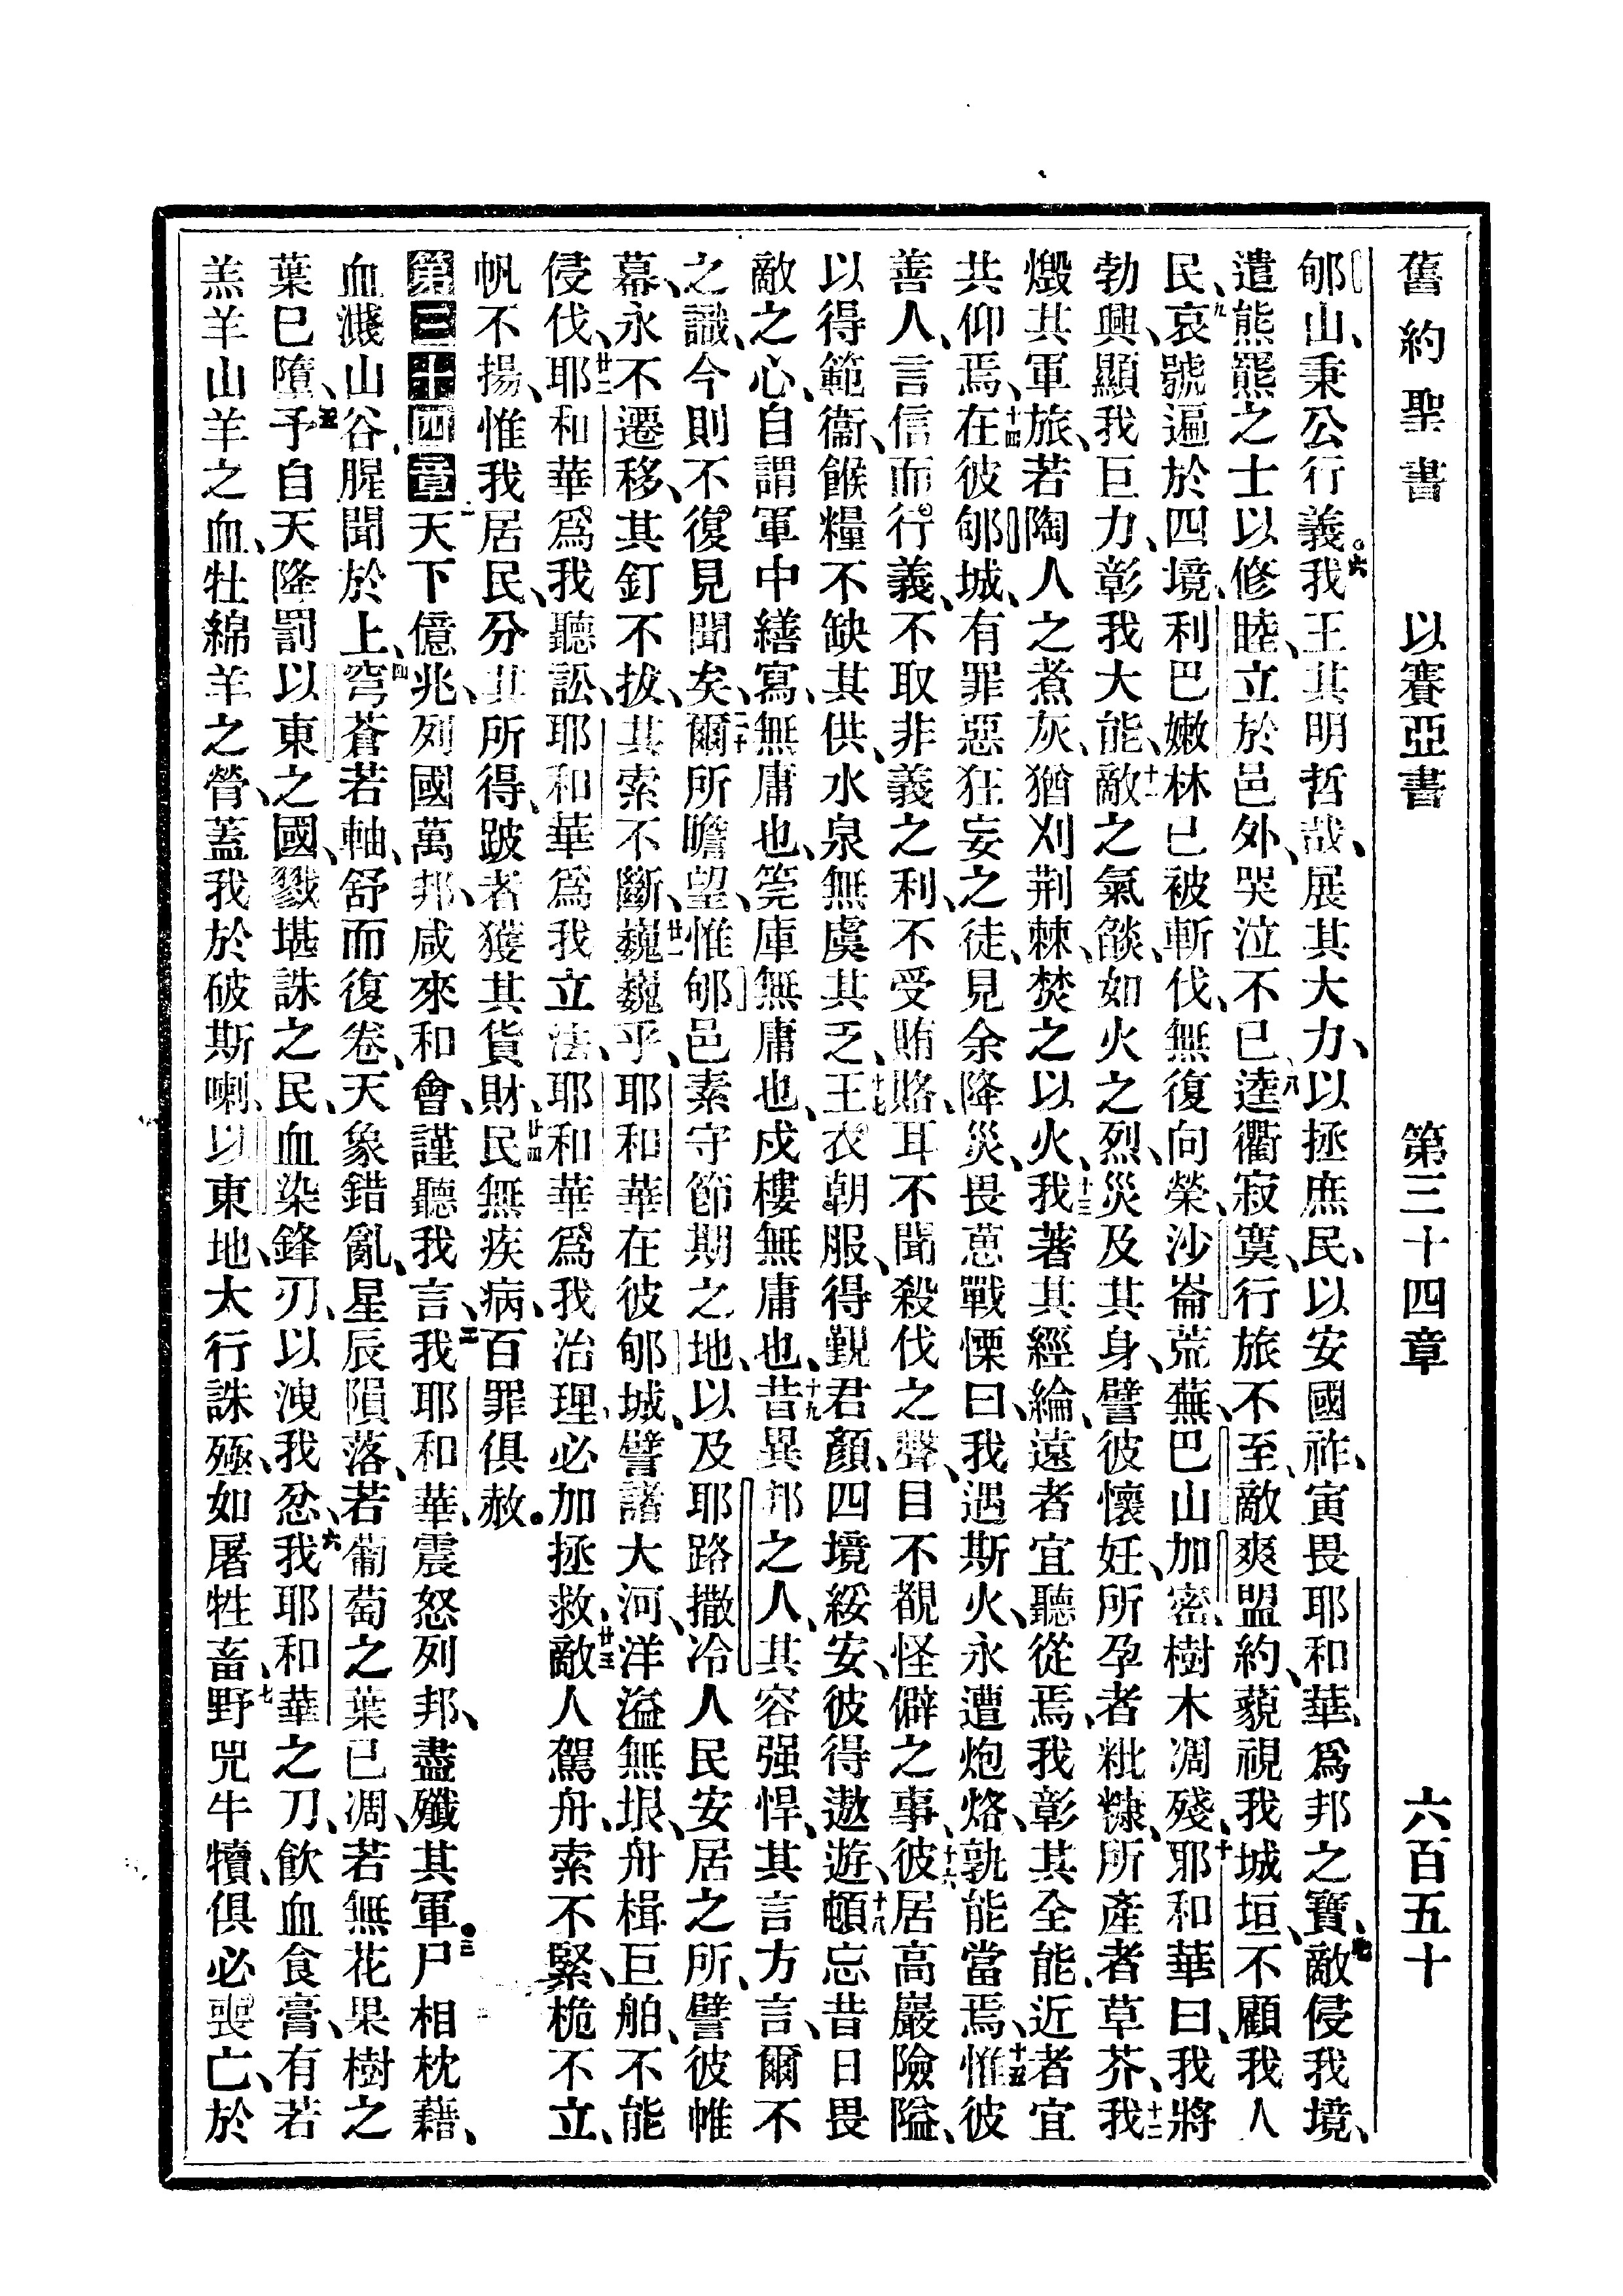 舊約聖書 以賽亞書 第三十四章 六百五十
郇山、秉公行義。六我王其明哲哉、展其大力、以拯庶民、以安國祚、寅畏耶和華、爲邦之寶、七敵侵我境、
遣熊羆之士以修睦、立於邑外、哭泣不已、八逵衢寂寞、行旅不至、敵爽盟約、藐視我城垣、不顧我人
民、九哀號遍於四境、利巴嫩林已被斬伐、無復向榮、沙崙荒蕪、巴山加密、樹木凋殘、十耶和華曰、我將
勃興、顯我巨力、彰我大能、十一敵之氣燄、如火之烈、災及其身、譬彼懷妊、所孕者粃糠、所產者草芥、十二我
燬其軍旅、若陶人之煮灰、猶刈荆棘、焚之以火、十三我著其經綸、遠者宜聽從焉、我彰其全能、近者宜
共仰焉、十四在彼郇城、有罪惡狂妄之徒、見余降災、畏葸戰慄曰、我遇斯火、永遭炮烙、孰能當焉、十五惟彼
善人、言信而行義、不取非義之利、不受賄賂、耳不聞殺伐之聲、目不覩怪僻之事、十六彼居高巖險隘、
以得範衞、餱糧不缺其供、水泉無虞其乏、十七王衣朝服、得覲君顏、四境綏安、彼得遨遊、十八頓忘昔日畏
敵之心、自謂軍中繕寫、無庸也、筦庫無庸也、戍樓無庸也、十九昔異邦之人、其容强悍、其言方言、爾不
之識、今則不復見聞矣、二十爾所瞻望、惟郇邑素守節期之地、以及耶路撒冷人民安居之所、譬彼帷
幕、永不遷移、其釘不拔、其索不斷、廿一巍巍乎、耶和華在彼郇城、譬諸大河、洋溢無垠、舟楫巨舶、不能
侵伐、廿二耶和華爲我聽訟、耶和華爲我立法、耶和華爲我治理、必加拯救、廿三敵人駕舟、索不緊、桅不立、
帆不揚、惟我居民、分其所得、跛者獲其貨財、廿四民無疾病、百罪俱赦。
第三十四章 一天下億兆、列國萬邦、咸來和會、謹聽我言、二我耶和華、震怒列邦、盡殲其軍。三尸相枕藉、
血濺山谷、腥聞於上、四穹蒼若軸、舒而復卷、天象錯亂、星辰隕落、若葡萄之葉已凋、若無花果樹之
葉已墮、五予自天降罰以東之國、戮堪誅之民、血染鋒刃、以洩我忿、六我耶和華之刀、飮血食膏、有若
羔羊山羊之血、牡綿羊之膋、蓋我於破斯喇、以東地、大行誅殛、如屠牲畜、七野兕牛犢、俱必喪亡、於